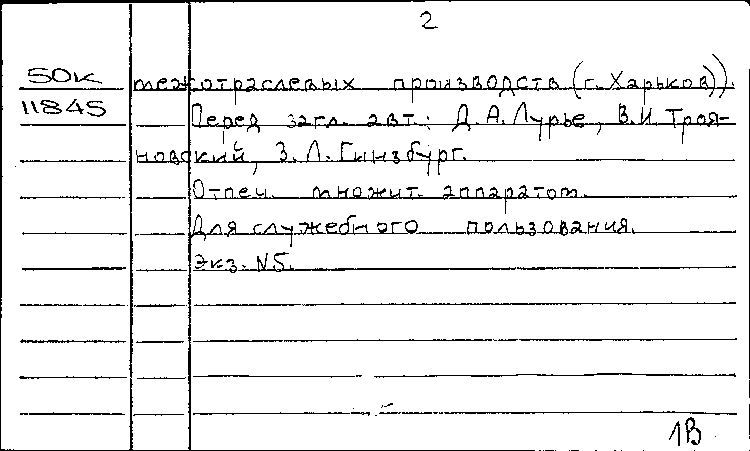 2
50к межотраслевых производств (г. Харьков)).
11845 Перед загл. авт.: Д.А. Лурье, В.И. Троя-
новский, З.Л. Гинзбург.
Отпеч. множит. аппаратом.
Для служебного пользования.
Экз. N5.
1В